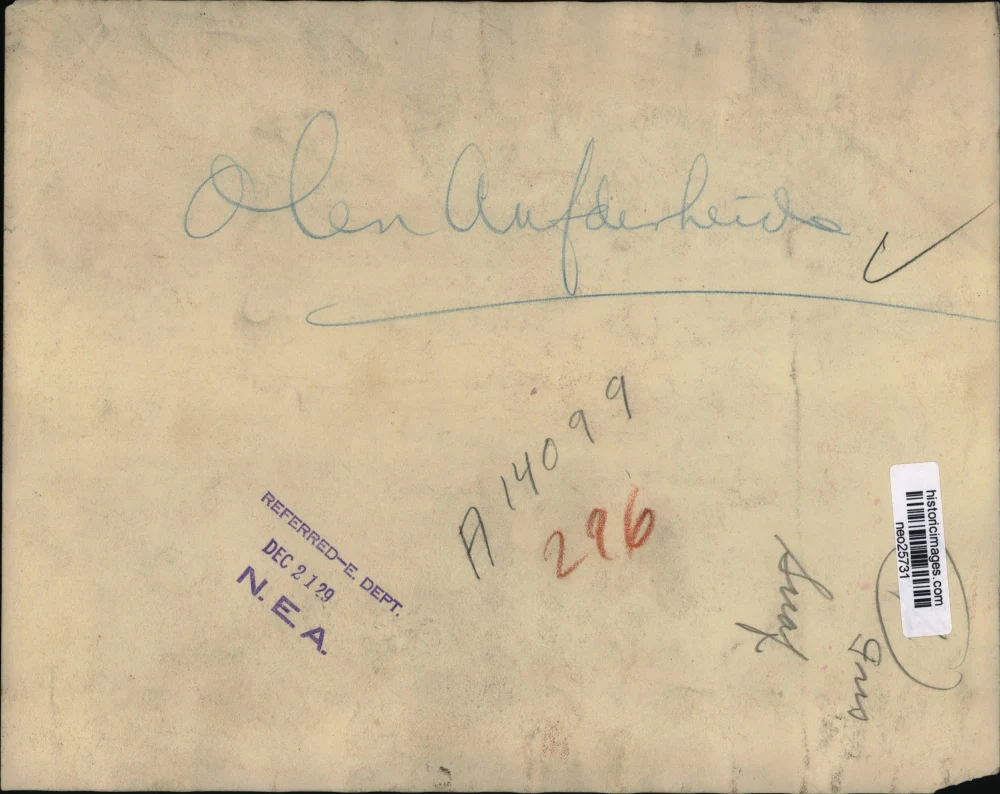 Olen Aufderheide
A 14099
296
REFERRED—E. DEPT.
DEC 21 29
N.E.A.
historicimages.com
neo25731